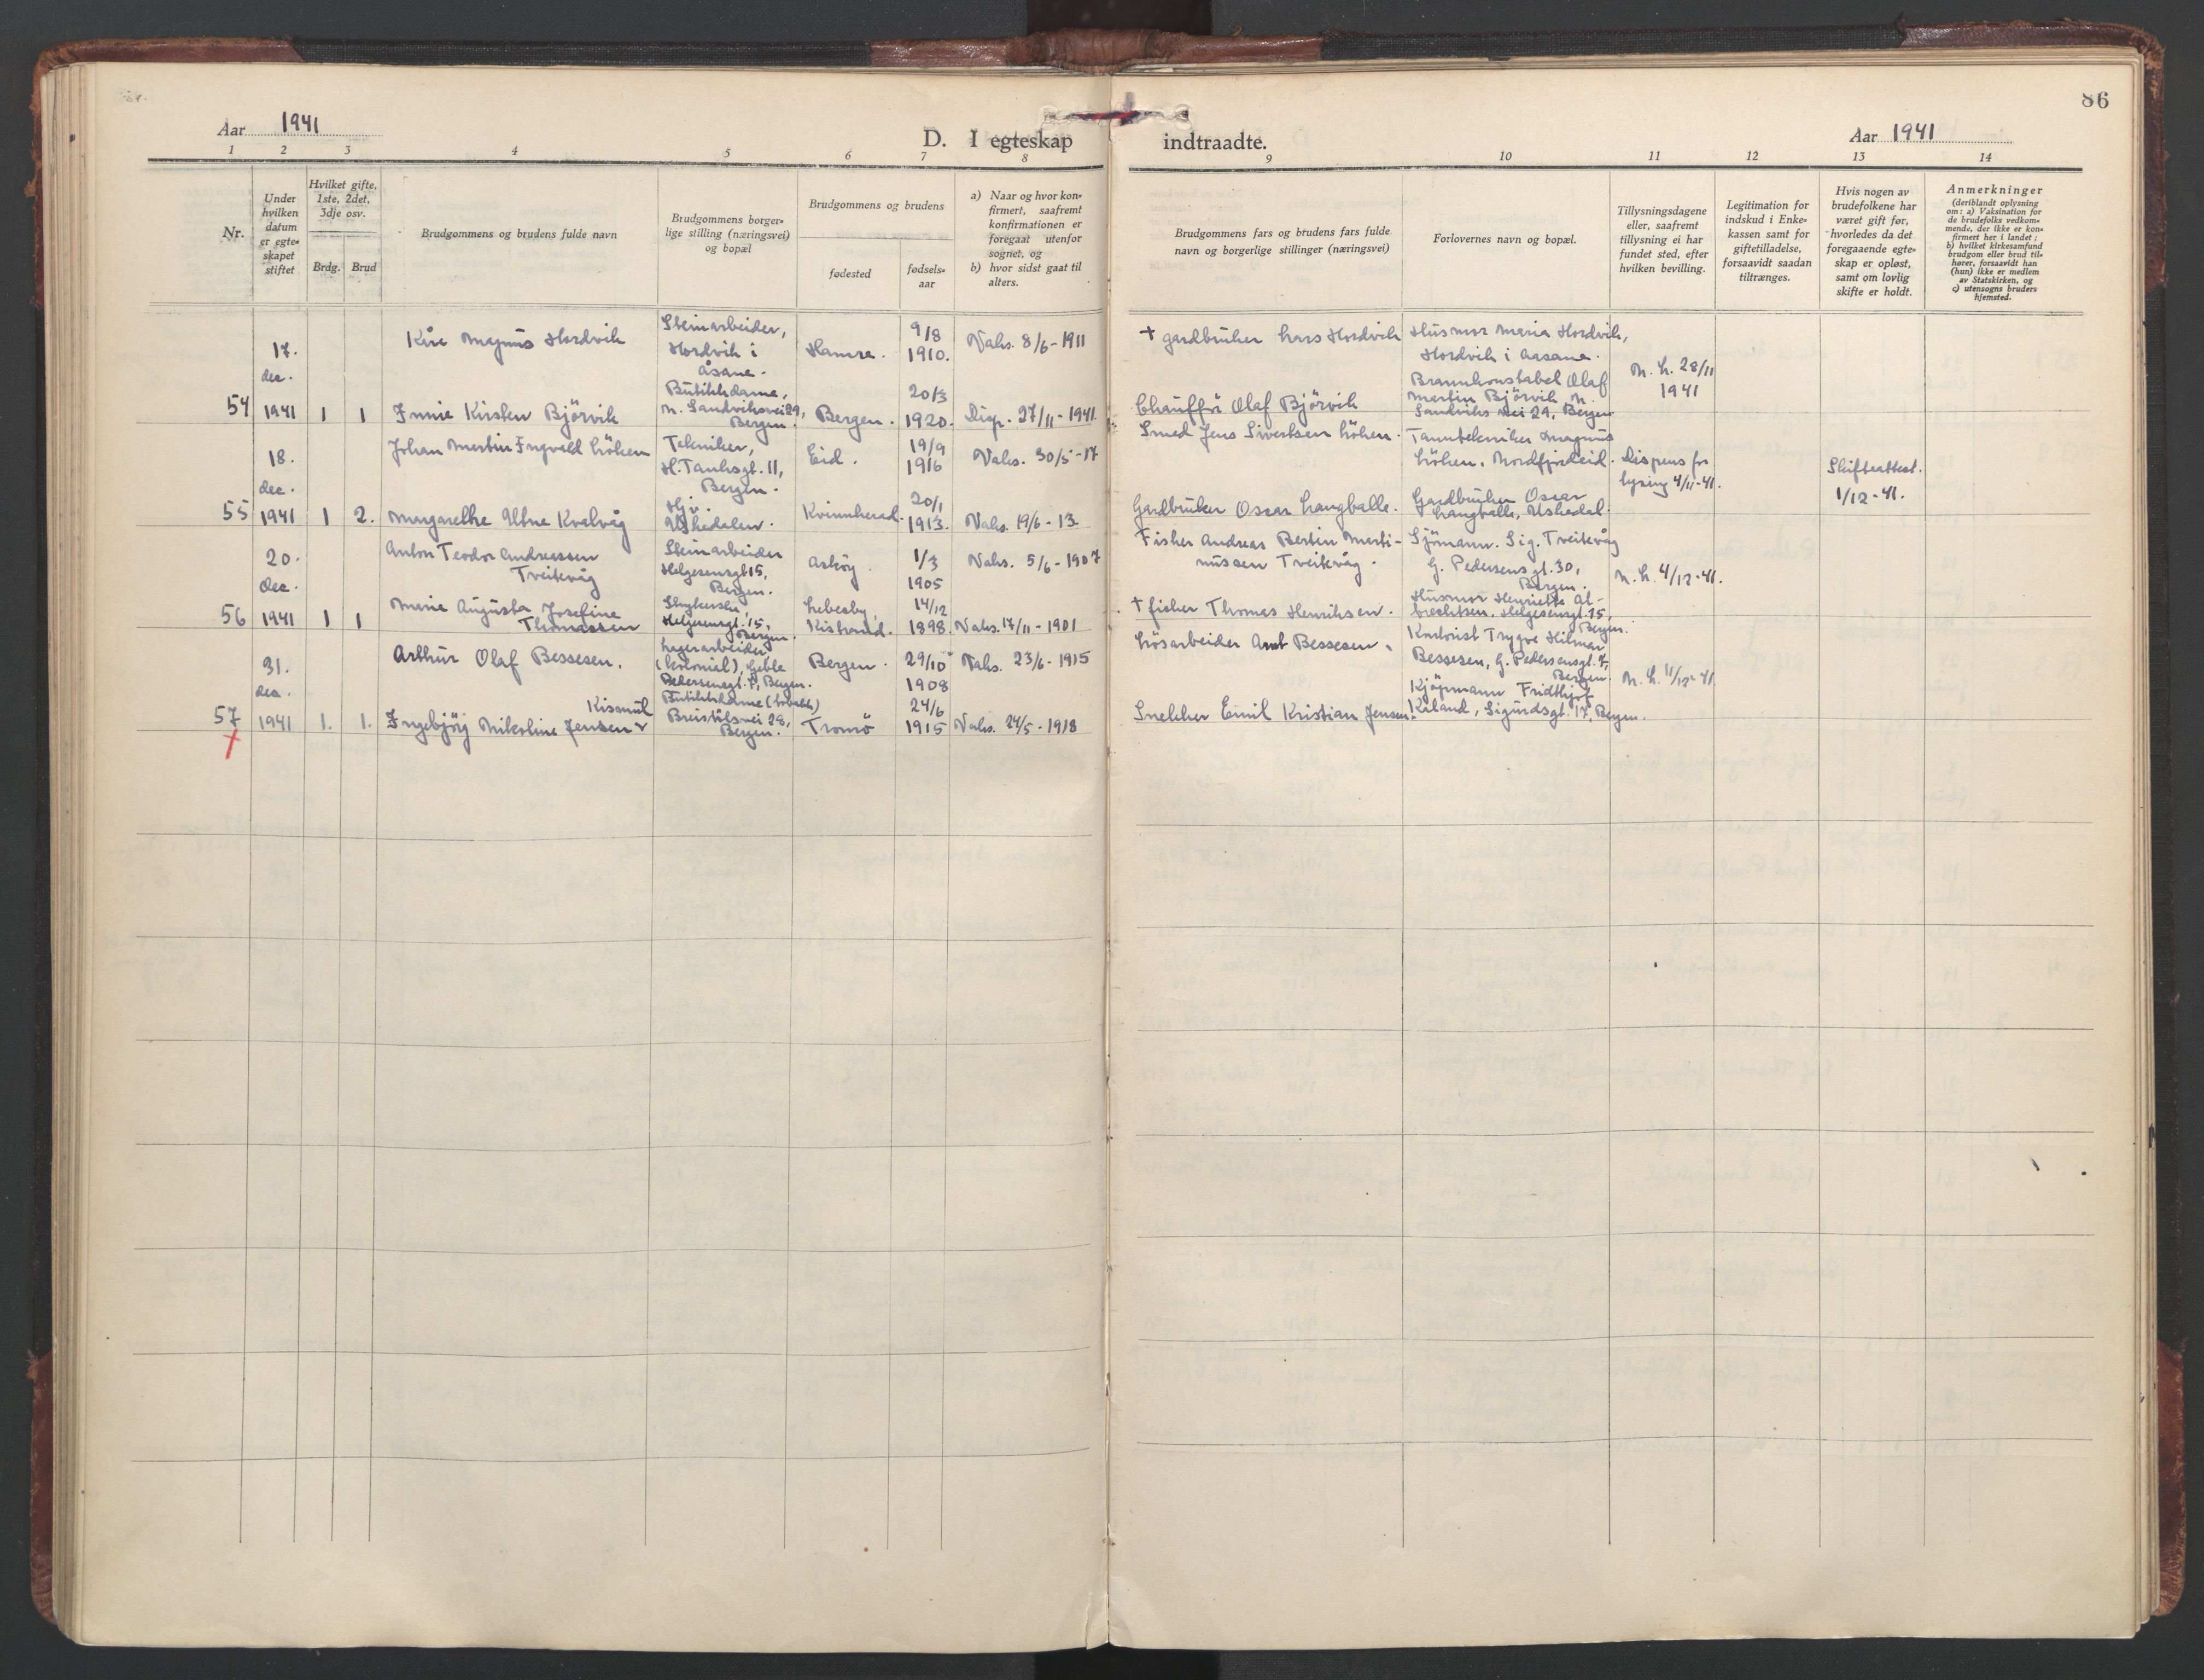 86
Aar 1941
D. I egteskap indtraadte.
Aar 1941
1 2 3 4 5 6 7 8 9 10 11 12 13 14
Nr.
Under
hvilken
datum
er egte-
skapet
stiftet
Hvilket gifte,
1ste, 2det,
3dje osv.
Brdg. Brud
Brudgommens og brudens fulde navn
Brudgommens borger-
lige stilling (næringsvei)
og bopæl
Brudgommens og brudens
fødested
fødsels-
aar
a) Naar og hvor kon-
firmert, saafremt
konfirmationen er
foregaat utenfor
sognet, og
b) hvor sidst gaat til
alters.
Brudgommens fars og brudens fars fulde
navn og borgerlige stillinger (næringsvei)
Forlovernes navn og bopæl.
Tillysningsdagene
eller, saafremt
tillysning ei har
fundet sted, efter
hvilken bevilling.
Legitimation for
indskud i Enke-
kassen samt for
giftetilladelse,
forsaavidt saadan
tiltrænges.
Hvis nogen av
brudefolkene har
været gift før,
hvorledes da det
foregaaende egte-
skap er opløst,
samt om lovlig
skifte er holdt.
Anmerkninger
(deriblandt oplysning
om: a) Vaksination for
de brudefolks vedkom-
mende, der ikke er kon-
firmert her i landet;
b) hvilket kirkesamfund
brudgom eller brud til-
hører, forsaavidt han
(hun) ikke er medlem
av Statskirken, og
c) utensogns bruders
hjemsted.
54
17.
dec.
1941
1 1
Kåre Magnus Hordvik
Steinarbeider,
Hordvik i
Åsane.
Hamre.
9/8
1910.
Vaks. 8/6-1911
+ gardbruker Lars Hordvik
Husmor Maria Hordvik,
Hordvik i Aasane.
Jennie Kirsten Björvik
Butikkdame,
N. Sandviksvei 29,
Bergen.
Bergen.
20/3
1920.
Disp. 27/11-1941.
Chauffør Olaf Björvik
Brannkonstabel Olaf
Martin Björvik, N.
Sandviks vei 29, Bergen.
N. K. 28/11
1941
55
18.
dec.
1941
1 2.
Johan Martin Ingvald Löken
Tekniker,
H. Tanksgt. 11,
Bergen.
Eid.
19/9
1916
Vaks. 30/5-17
Smed Jens Sivertsen Löken.
Tanntekniker Magnus
Löken, Nordfjordeid.
Dispens for
lysing 4/11-41.
Skifteattest.
1/12-41.
Margarethe Altne Kvalvåg
Hj. v.
Uskedalen.
Kvinnherad.
20/1
1913.
Vaks. 19/6-13.
Gardbruker Oscar Langballe.
Gardbruker Oscar
Langballe, Uskedal.
56
20.
dec.
1941
1 1
Anton Teodor Andreassen
Tveitevåg
Steinarbeider
Helgesensgt 15,
Bergen.
Askøy.
1/3
1905
Vaks. 5/6-1907
Fisker Andreas Bertin Marti-
nussen Tveitevåg.
Sjömann. Sig. Tveitevåg
G. Pedersens gt. 30,
Bergen.
N. K. 4/12-41.
Marie Augusta Josefine
Thomassen
Strykerske,
Helgesensgt. 15,
Bergen.
Lebesby,
Kistrand.
14/12
1898.
Vaks. 17/11-1901
+ fisker Thomas Henriksen.
Husmor Henriette Al-
brechtsen, Helgesensgt. 15,
Bergen.
57
31.
dec.
1941
1. 1.
Arthur Olaf Bessesen.
Lagerarbeider
(kolonial), Geble
Pedersensgt. 7, Bergen.
Bergen.
29/10
1908
Vaks. 23/6-1915
Lösarbeider Arnt Bessesen.
Kontorist Trygve Hilmar
Bessesen, G. Pedersensgt. 7,
Bergen.
N. K. 11/12-41
Kismul
Ingebjörg Nikoline Jensen
Butikkdame (tobakk)
Breistølsvei 28,
Bergen.
Tromsö
24/6
1915
Vaks. 24/5-1918
Snekker Emil Kristian Jensen.
Kjöpmann Fridthjof
Kaland, Sigurdsgt. 17, Bergen.